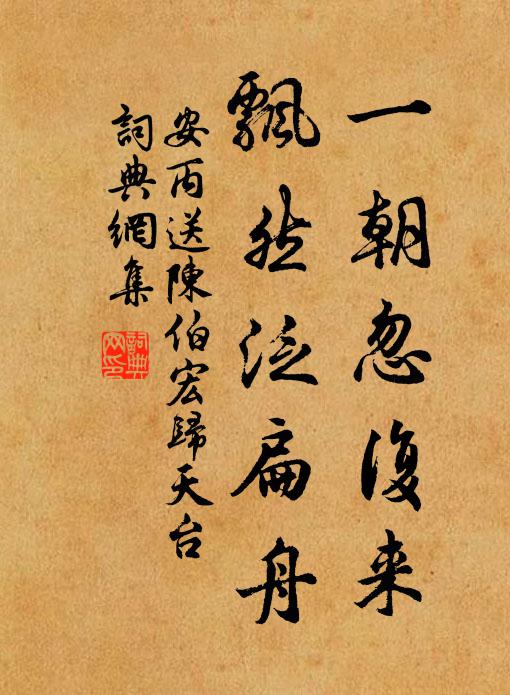 一朝忽復来
飄然泛扁舟
安丙送陳伯宏歸天台
詞典網集
詞典
网印